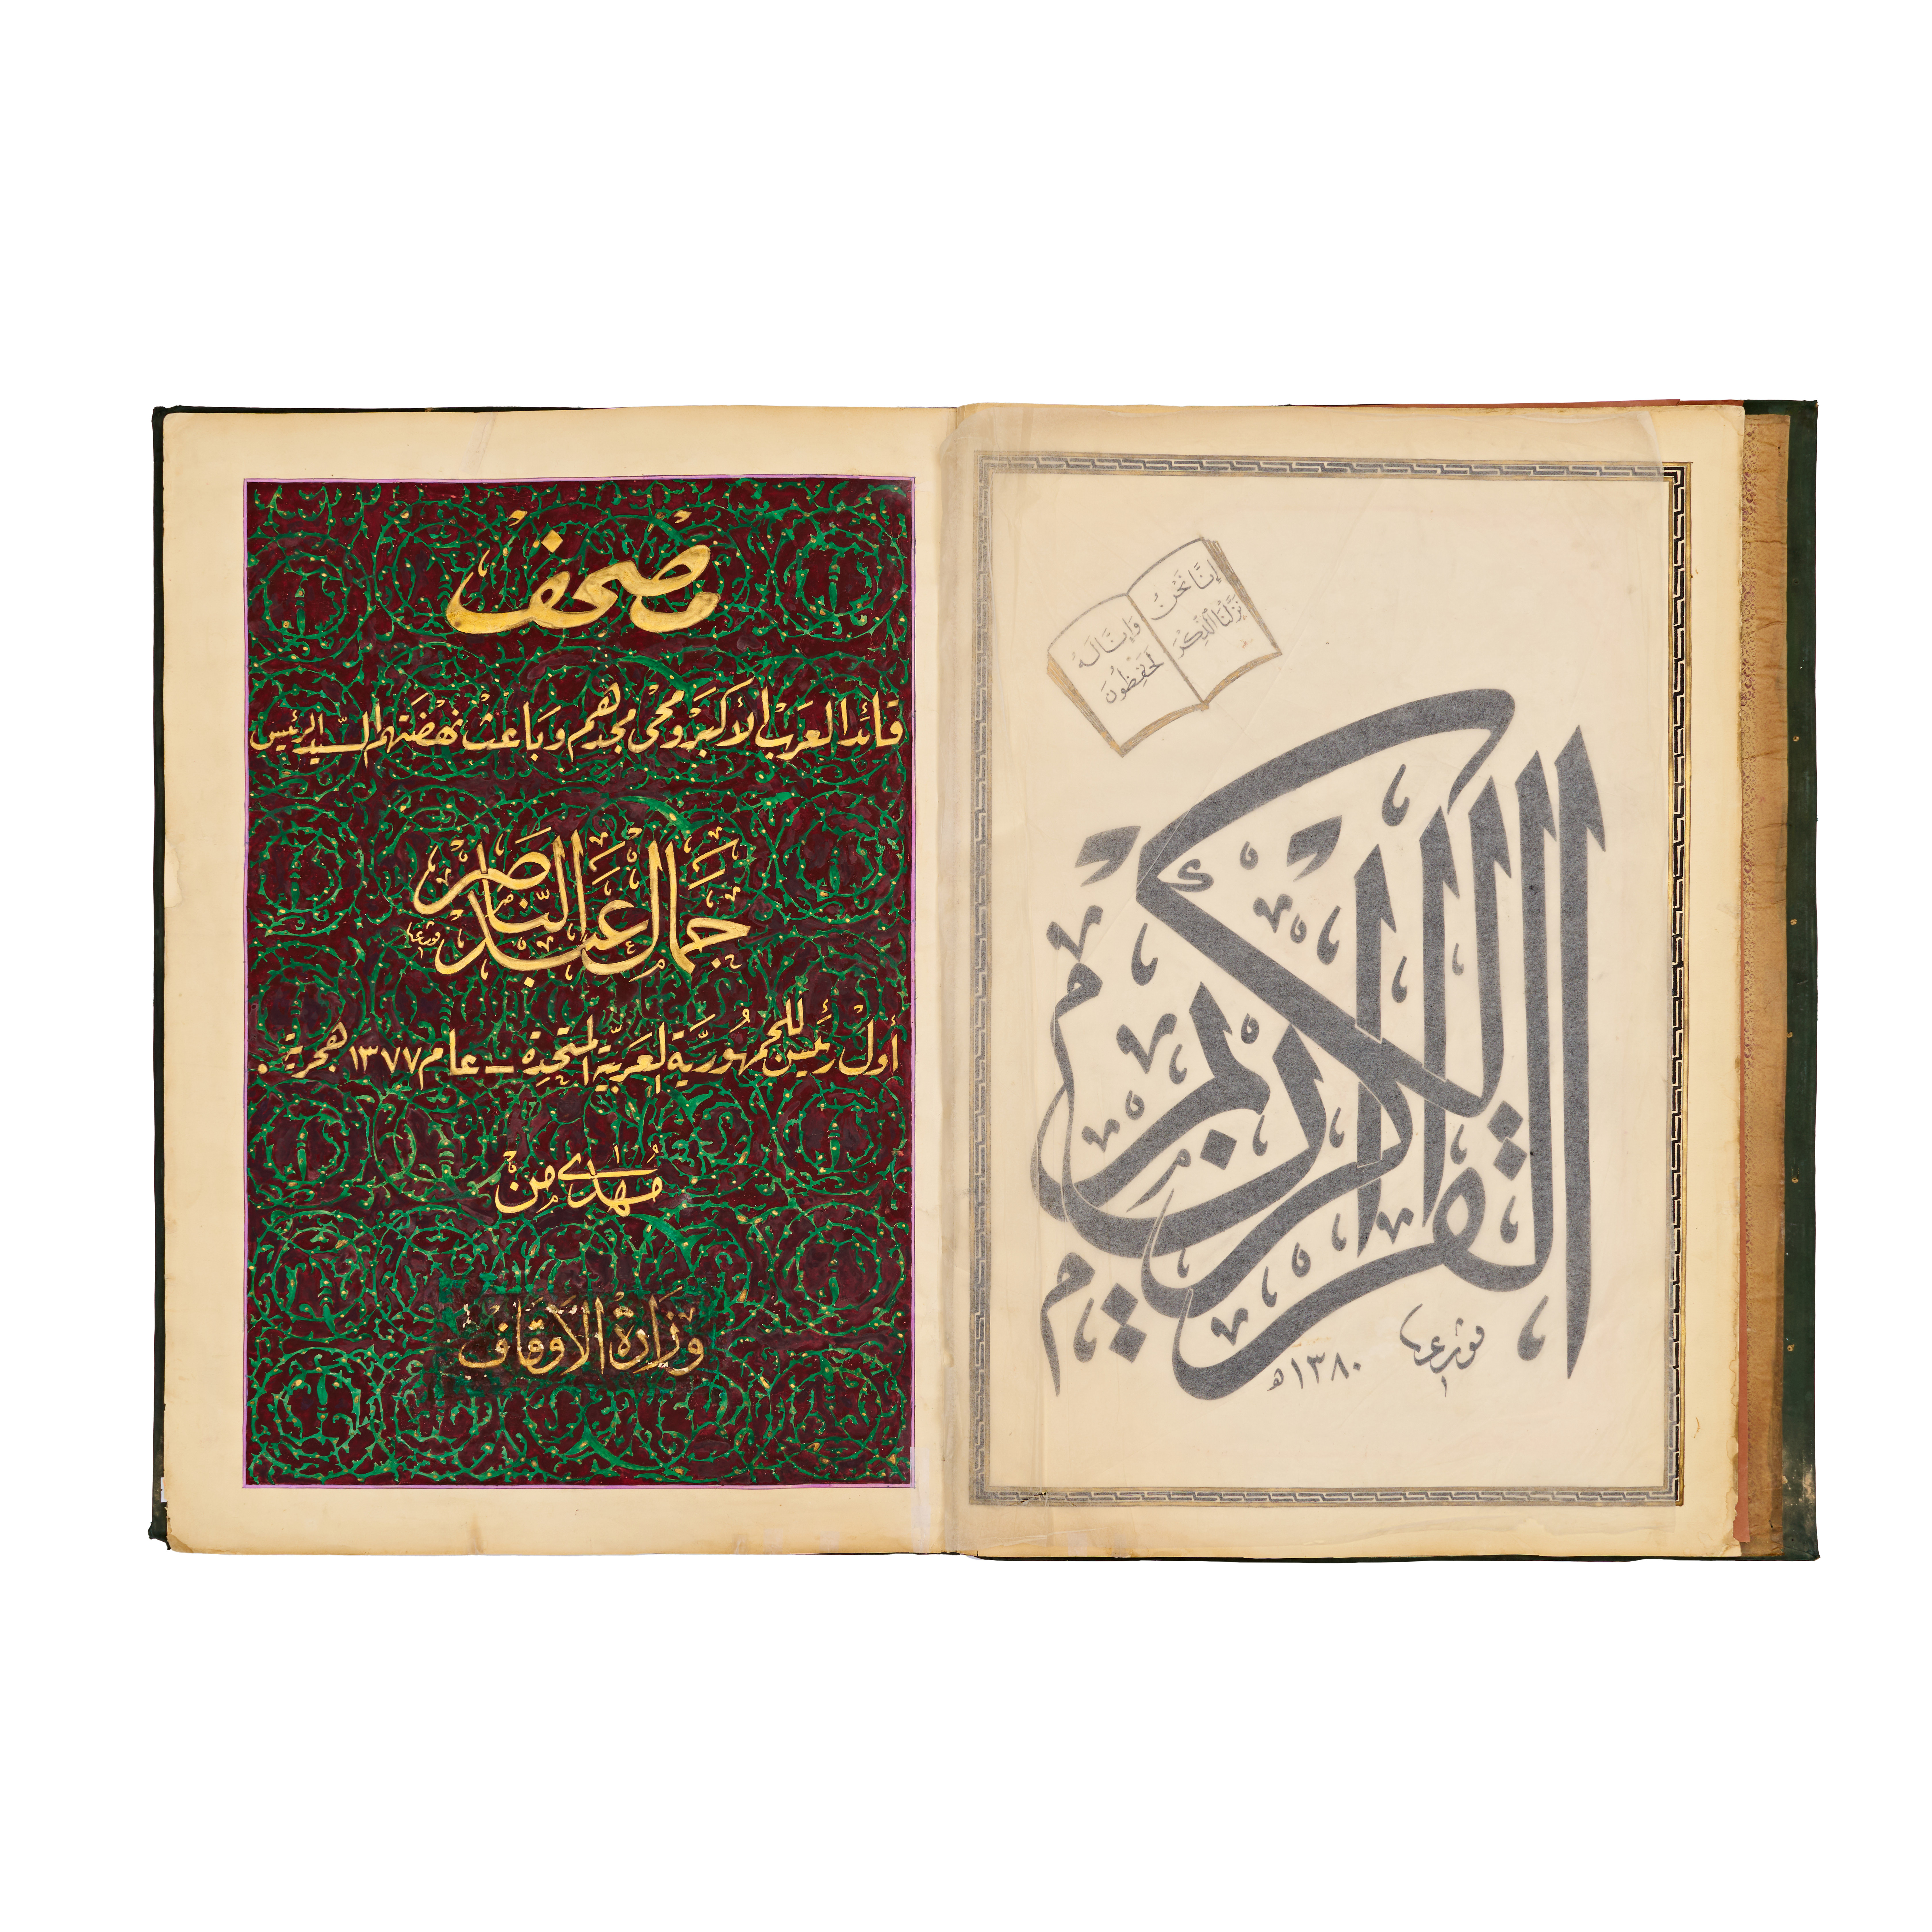 القرآن الكريم
إنا نحن
نزلنا الذكر
وإنا له
لحفظون
١٣٨٠ هـ
مصحف
قائد العرب الأكبر ومحي مجدهم وباعث نهضتهم السيد الرئيس
جمال عبد الناصر
أول رئيس للجمهورية العربية المتحدة - عام ١٣٧٧ هجرية .
مهدى من
وزارة الأوقاف